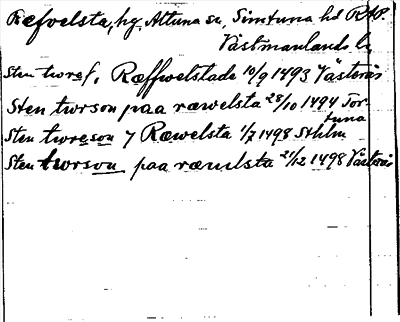 Ræfvelsta, hg, Altuna sn, Simtuna hd RAP.
Västmanlands l
Sten twref, Ræffwelstade 10/9 1493 Västerås
Sten twrson paa ræwelsta 28/10 1494 Tor-
tuna
Sten twreson 7 Ræwelsta 1/7 1498 Sthlm
Sten twrson paa ræuelsta 21/12 1498 Västerås